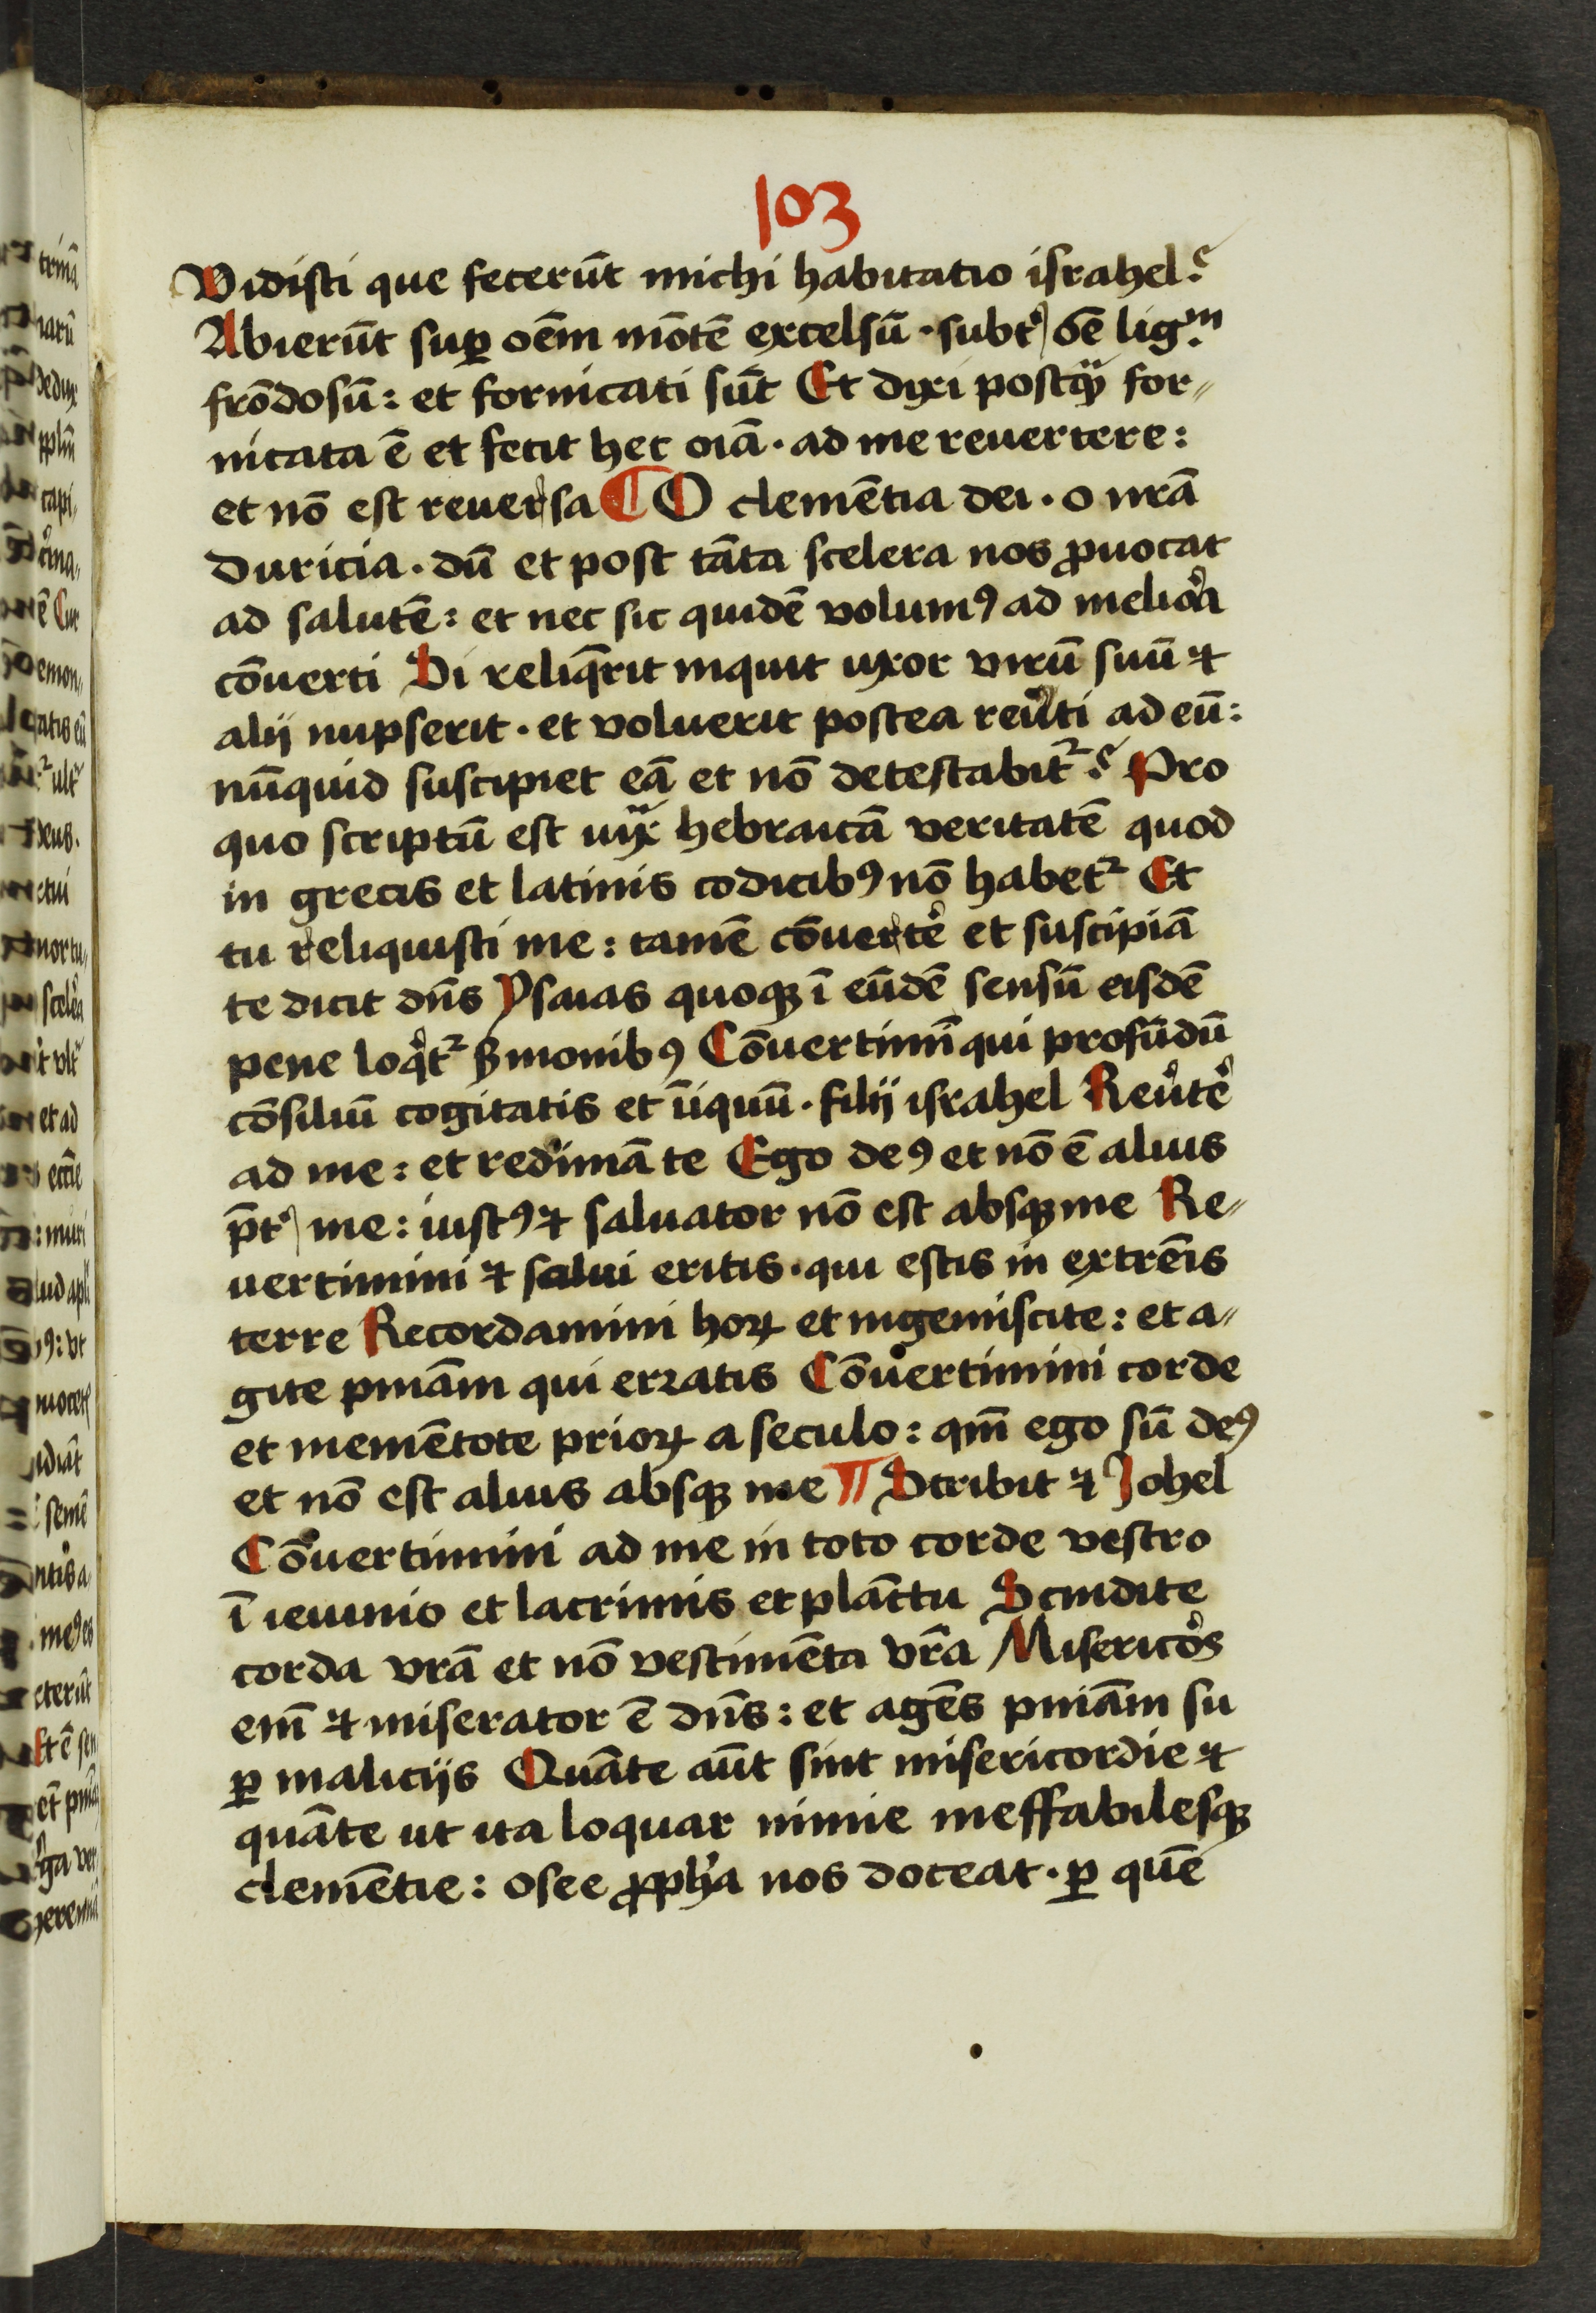 103
Vidisti que fecerūt michi habitatio israhel?
Abierūt suꝑ oēm mōtē excelsū · subt᷑ oē lig.m
frōdosū : et fornicati sūt Et dixi postq̄ for-
nicata ē et fecit hec oīa · ad me reuertere :
et nō est reuersa ¶ O clemētia dei · o nr̄a
duricia · dū et post tāta scelera nos ꝓuocat
ad salutē : et nec sic quidē volumꝰ ad meliora
cōuerti Si reliq̄rit inquit uxor virū suū ⁊
alij nupserit · et voluerit postea reu᷑ti ad eū :
nūquid suscipiet eā et nō detestabit᷑? Pro
quo scriptū est iux̄ hebraicā veritatē quod
in grecis et latinis codicibꝰ nō habet᷑ Et
tu reliquisti me : tamē cōuerte᷑ et suscipiā
te dicit dn̄s Ysaias quoqꝫ ī eūdē sensū eisdē
pene loq̄t᷑ ẜmonibꝰ Cōuertimī qui profūdū
cōsiliū cogitatis et īiquū · filij israhel Reu᷑te᷑
ad me : et redimā te Ego deꝰ et nō ē alius
p̄t᷑ me : iustꝰ ⁊ saluator nō est absqꝫ me Re-
uertimini ⁊ salui eritis · qui estis in extrēis
terre Recordamini hoꝝ et ingemiscite : et a-
gite pniām qui erratis Cōuertimini corde
et memētote prioꝝ a seculo : qm̄ ego sū deꝰ
et nō est alius absqꝫ me ¶ Scribit ⁊ Johel
Cōuertimini ad me in toto corde vestro
ī ieiunio et lacrimis et plāctu Scindite
corda vr̄a et nō vestimēta vr̄a Misericors
em̄ ⁊ miserator ē dn̄s : et agēs pniām su
ꝑ malicijs Quāte aūt sint misericordie ⁊
quāte ut ita loquar nimie ineffabilesqꝫ
clemētie : osee ꝓph̄a nos doceat · ꝑ quē